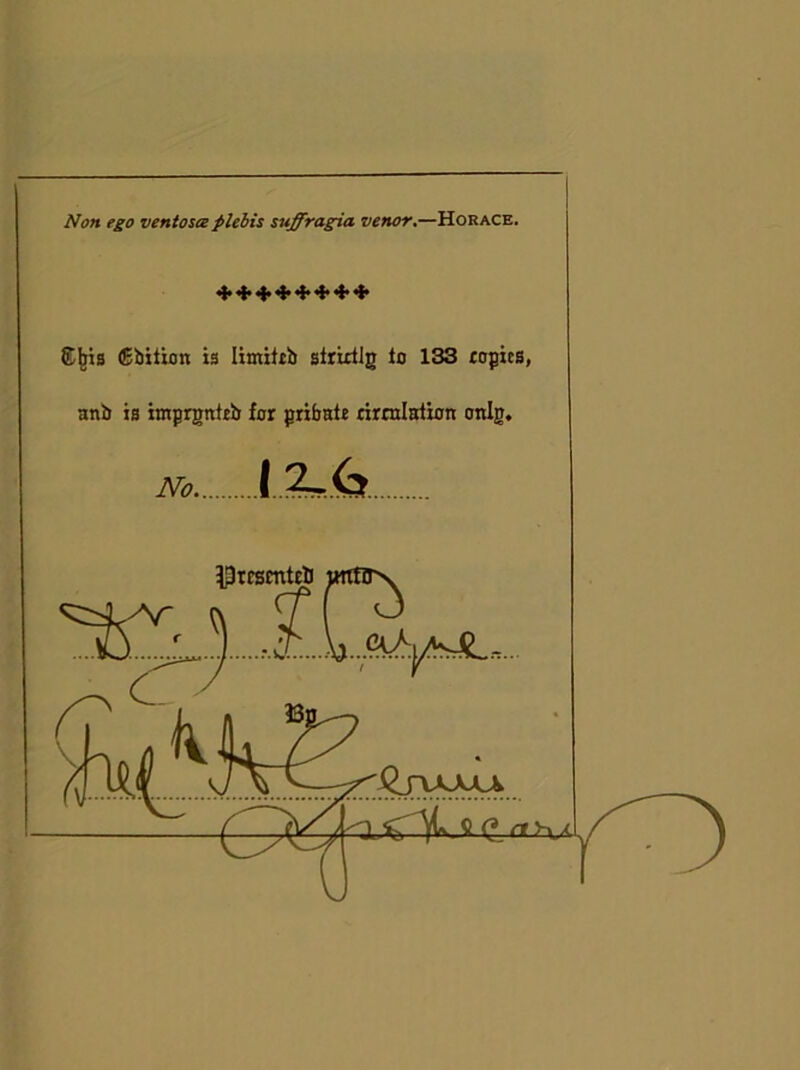 Non ego ventosæ plebis suffragia venor.—HORACE.
This Edition is limited strictly to 133 copies,
and is imprynted for private circulation only.
No. 126
Presented unto
Dr. J. F. Payne
By